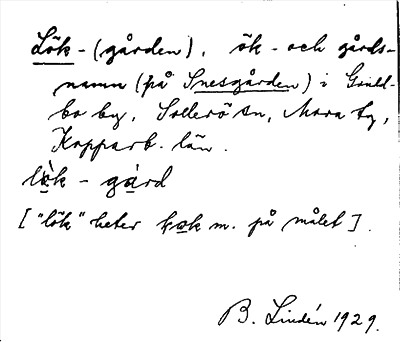 Lök-(gården), ök- och gårds-
namn (på Snesgården) i Gruld-
bo by, Sollerö sn, Mora tg,
Kopparb. län.
lök - gård
["lök" heter lok m. på målet].
B. Lindén 1929.